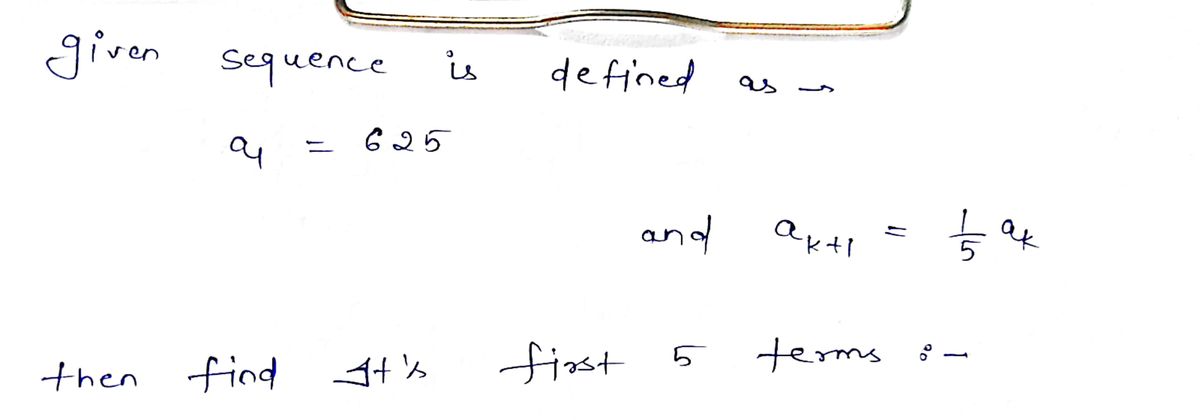 given sequence is defined as →
a₁ = 625
and aₖ₊₁ = 1/5 aₖ
then find It's first 5 terms :-